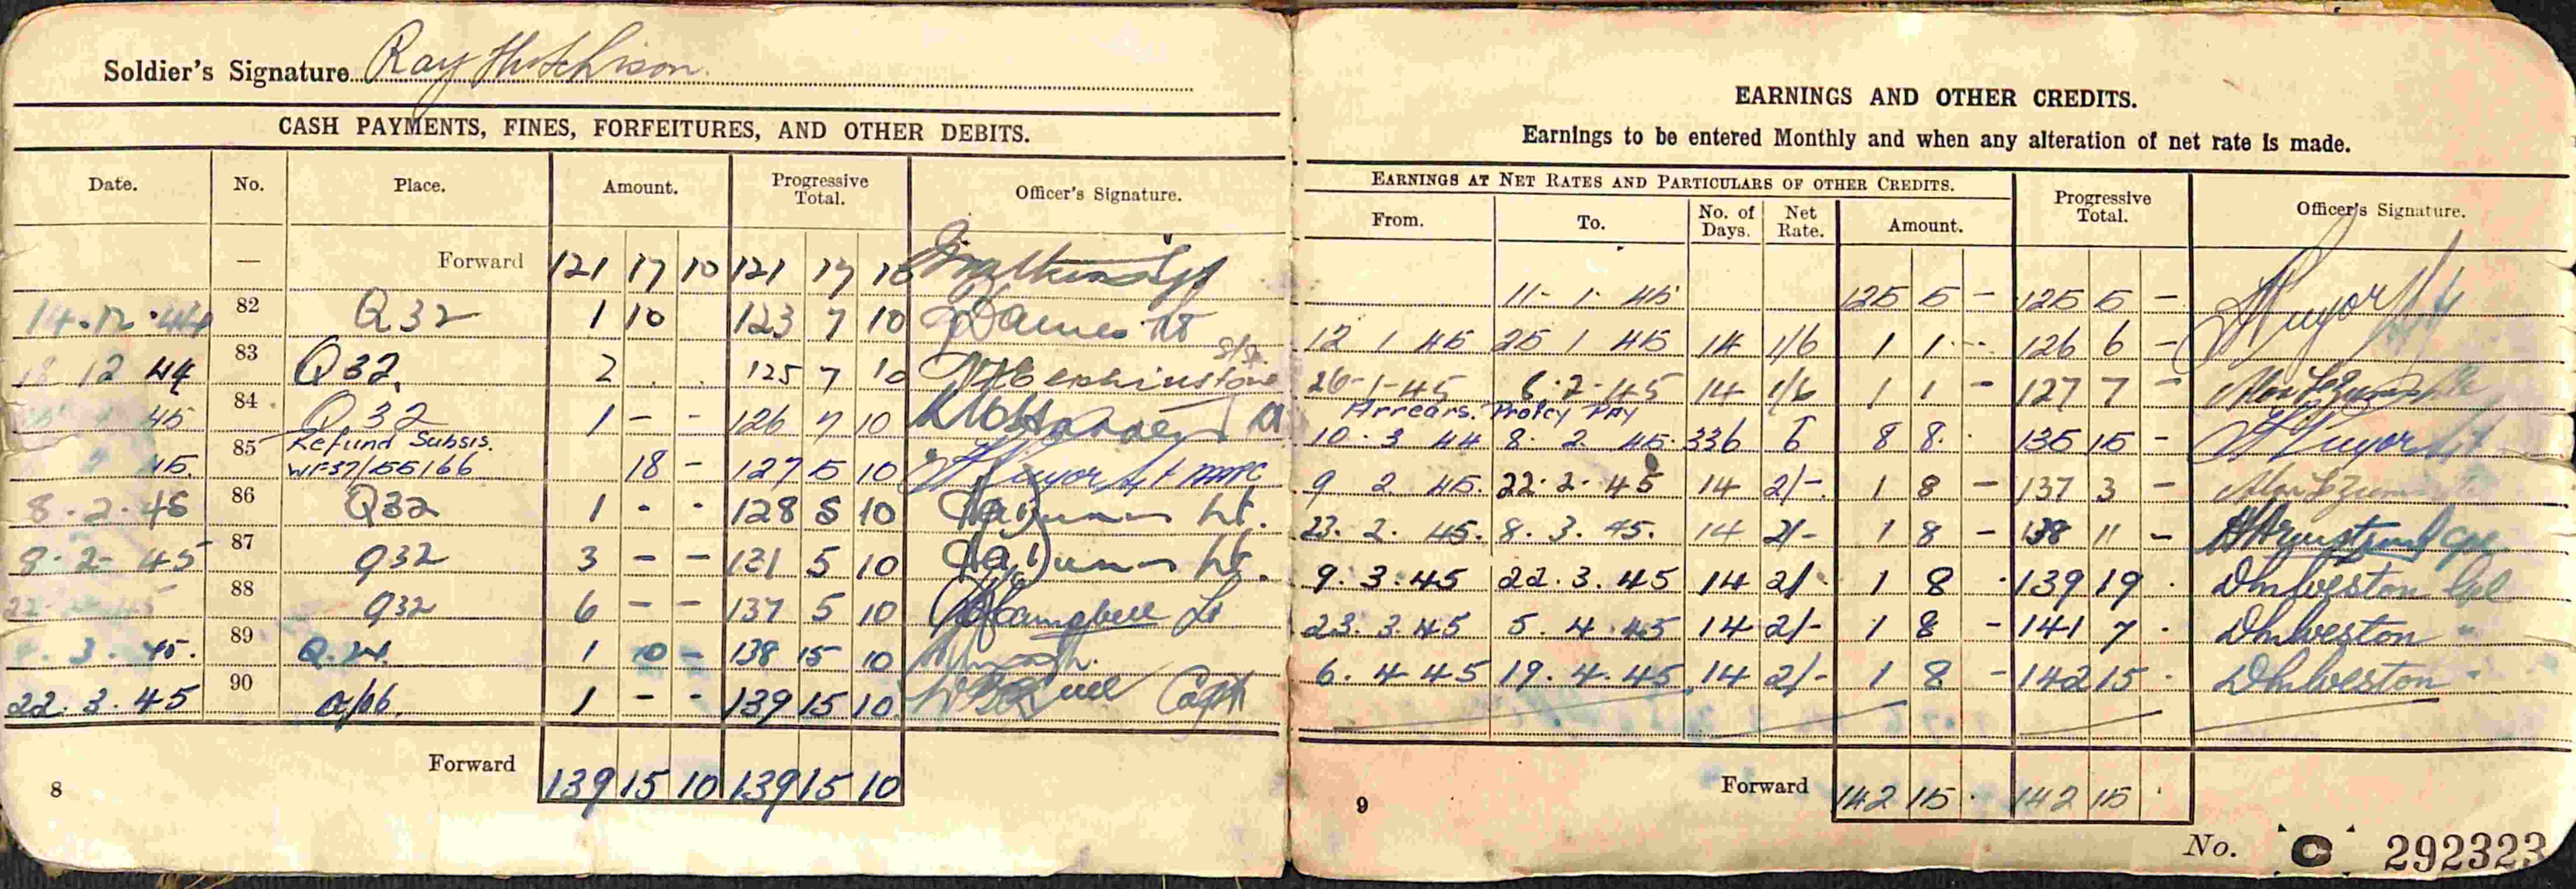 Soldier's Signature Ray Hutchison
CASH PAYMENTS, FINES, FORFEITURES, AND OTHER DEBITS.
Date. No. Place. Amount. Progressive Total. Officer's Signature.
— Forward 121 17 10 121 17 10
14.12.44 82 Q32 1 10 123 7 10
12 44 83 Q32. 2 . . 125 7 10
45 84 Q32 1 - - 126 7 10
Refund Subsis.
45. 85 WF37/55166 18 - 127 5 10
8.2.45 86 Q32 1 - - 128 5 10 Lt.
9.2-45 87 Q32 3 — — 131 5 10 Lt.
88 Q32 6 — — 137 5 10 Campbell Lt
3. 45. 89 1 10 — 138 15 10
22.3.45 90 1 - - 139 15 10 Capt
Forward 139 15 10 139 15 10
8
EARNINGS AND OTHER CREDITS.
Earnings to be entered Monthly and when any alteration of net rate is made.
EARNINGS AT NET RATES AND PARTICULARS OF OTHER CREDITS. Progressive Total. Officer's Signature.
From. To. No. of Days. Net Rate. Amount.
11-1-45 125 5 — 125 5 — Pryor
12 1 45 25 1 45 14 1/6 1 1 126 6 —
26-1-45 8.2-45 14 1/6 1 1 — 127 7 —
Arrears. Profcy Pay
10.3 44 8.2 45. 336 6 8 8. 135 15 — Pryor
9 2 45. 22.2.45 14 2/- 1 8 — 137 3 —
23.2.45. 8.3.45. 14 2/- 1 8 — 138 11 — Cpl
9.3.45 22.3.45 14 2/- 1 8 . 139 19 . DM Weston Cpl
23.3.45 5.4.45 14 2/- 1 8 — 141 7 . DM Weston "
6.4.45 19.4.45 14 2/- 1 8 — 142 15 . DM Weston "
Forward 142 15 . 142 15 .
9
No. C 292323